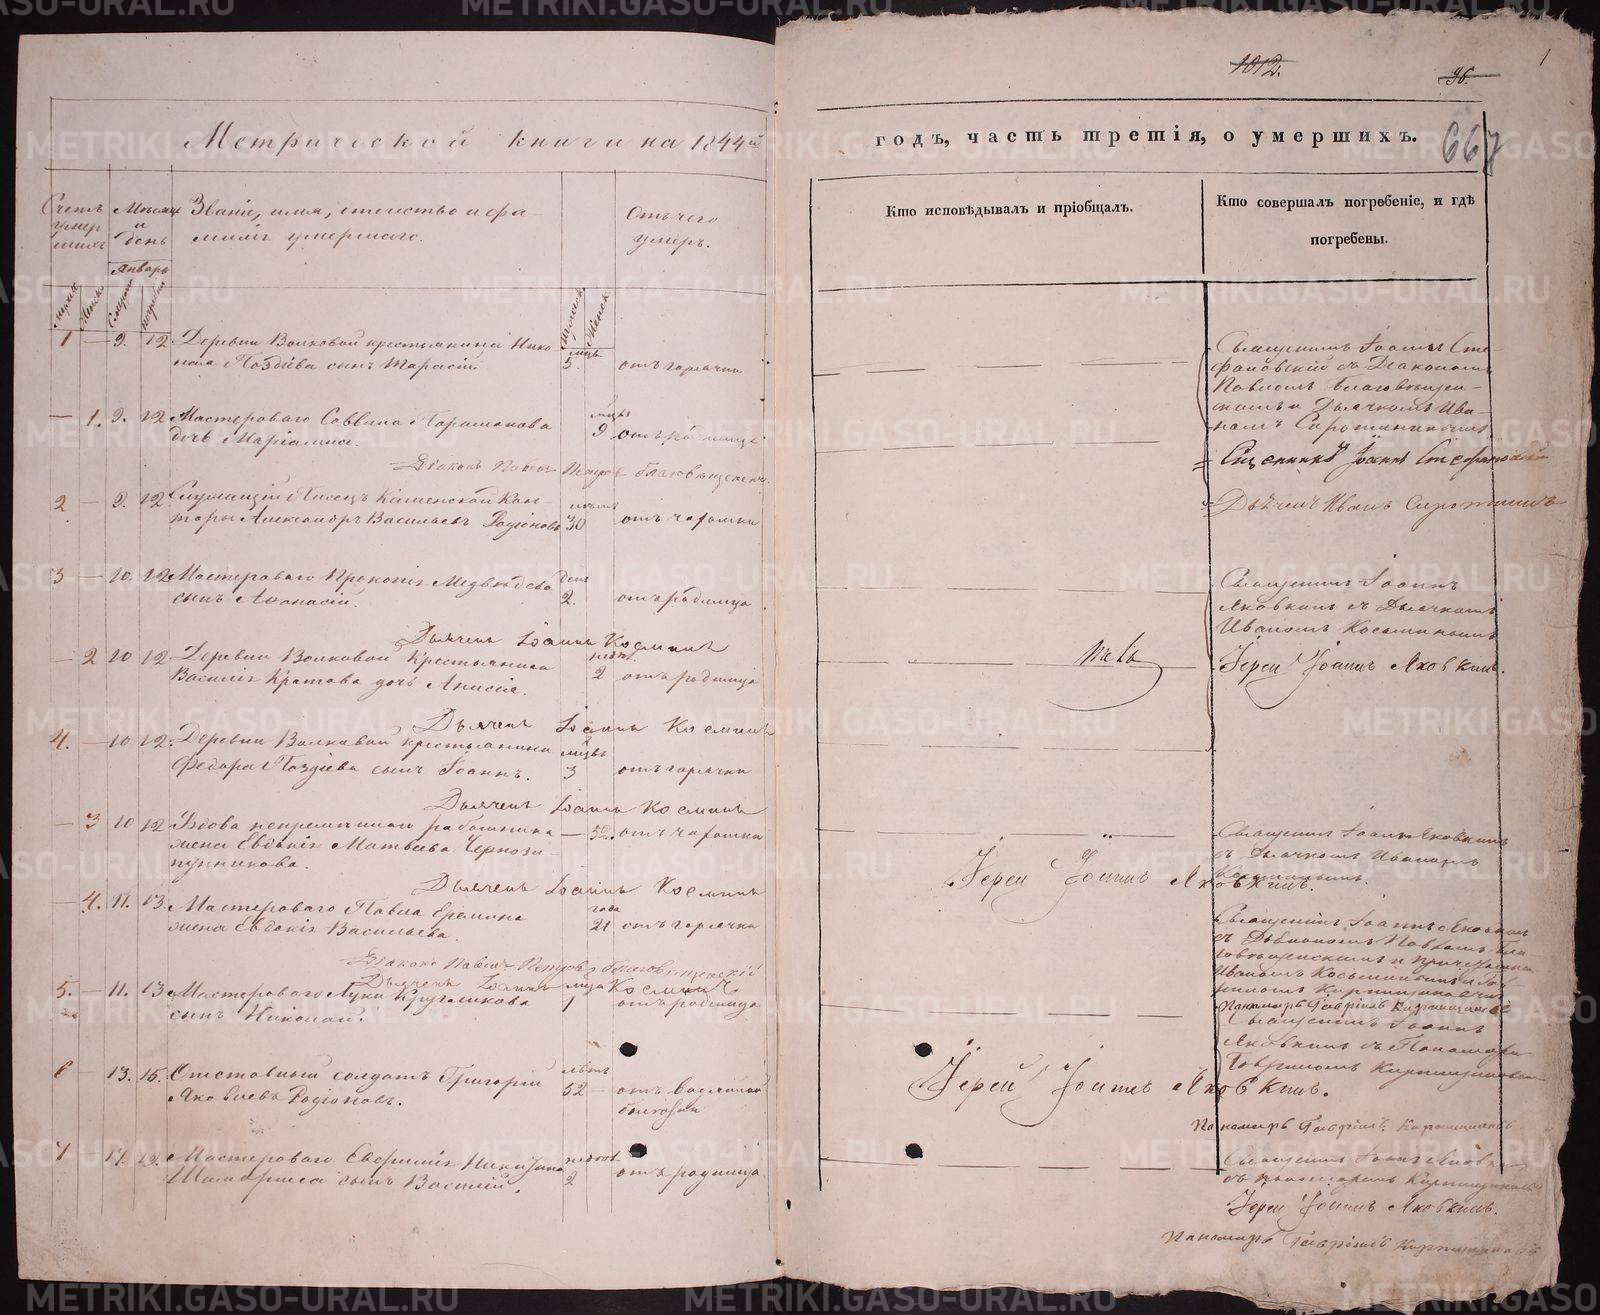 1012.
96.
1
667
Метрической книги на 1844й
годъ, часть третія, о умершихъ.
Счетъ умершихъ
Мѣсяцъ и день
Январь
Званіе, имя, отчество и фамилія умершаго.
Отъ чего умеръ.
Кто исповѣдывалъ и пріобщалъ.
Кто совершалъ погребеніе, и гдѣ погребены.
1 — 9. 12 Деревни Волковой крестьянина Нико-
лая Поздѣева сынъ Тарасій. 5. отъ горячки
Священникъ Іоаннъ Сте-
фановскій съ Діакономъ
Павломъ Благовѣщен-
скимъ и Дьячкомъ Ива-
номъ
— 1. 9. 12 Мастероваго Саввина
дочь Маріамна. мцы 9
Діаконъ Павелъ Петровъ Благовѣщенскій
Священникъ Іоаннъ Стефановскій
2 — 9. 12 Служащій Писецъ Каменской Кон-
торы Александръ Васильевъ Родіоновъ 30 отъ чахотки
Дьячекъ Иванъ
3 — 10. 12 Мастероваго Прокопія Медвѣдева
сынъ Аѳанасій. дни 2. отъ родимца
Священникъ Іоаннъ
Яковкинъ съ Дьячкомъ
Иваномъ Косьминымъ
Дьячекъ Іоаннъ Косминъ
— 2 10 12 Деревни Волковой Крестьянина
Василія дочь Анисія. 2 отъ родимца
Іерей Іоаннъ Яковкинъ.
Дьячекъ Іоаннъ Косминъ
4. — 10 12. Деревни Волковой крестьянина
Федора Поздѣева сынъ Іоаннъ. мцы 3 отъ горячки
Дьячекъ Іоаннъ Косминъ
— 3 10 12 Вдова непремѣннаго работника
жена Евдокія Матвѣева — 52. отъ чахотки
Священникъ Іоаннъ Яковкинъ
съ Дьячкомъ Иваномъ
Косьминымъ.
Іерей Іоаннъ Яковкинъ.
Дьячекъ Іоаннъ Косминъ
— 4. 11. 13. Мастероваго Павла Еремина
жена Евдокія Васильева. года 21 отъ горячки
Священникъ Іоаннъ Яковкинъ
съ Діакономъ Павломъ Бла-
говѣщенскимъ и
Иваномъ Косьминымъ и Гав-
риломъ
Діаконъ Павелъ Петровъ Благовѣщенскій
Дьячекъ Іоаннъ Косминъ
5. — 11. 13 Мастероваго Луки Кругликова
сынъ Николай. 1 отъ родимца
Пономарь Гавріилъ
Священникъ Іоаннъ
Яковкинъ съ Пономаремъ
Гавриломъ
6 — 13. 15. Отставный солдатъ Григорій
Яковлевъ Родіоновъ. лѣтъ 52 — отъ водяной
болѣзни
Іерей Іоаннъ Яковкинъ.
Пономарь Гавріилъ
7 17. 19. Мастероваго Никитина
сынъ Василій. 2 отъ родимца
Священникъ Іоаннъ
съ пономаремъ
Іерей Іоаннъ Яковкинъ.
Пономарь Гавріилъ
METRIKI.GASO-URAL.RU